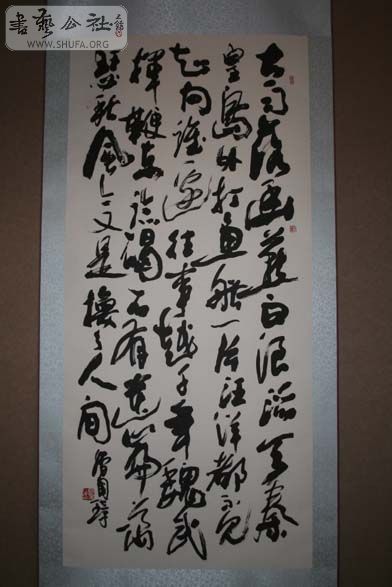 書藝公社
WWW.SHUFA.ORG
大雨落幽燕白浪滔天秦
皇島外打魚船一片汪洋都不見
知向誰邊往事越千年魏武
揮鞭東臨碣石有遺篇蕭
瑟秋風今又是換了人間